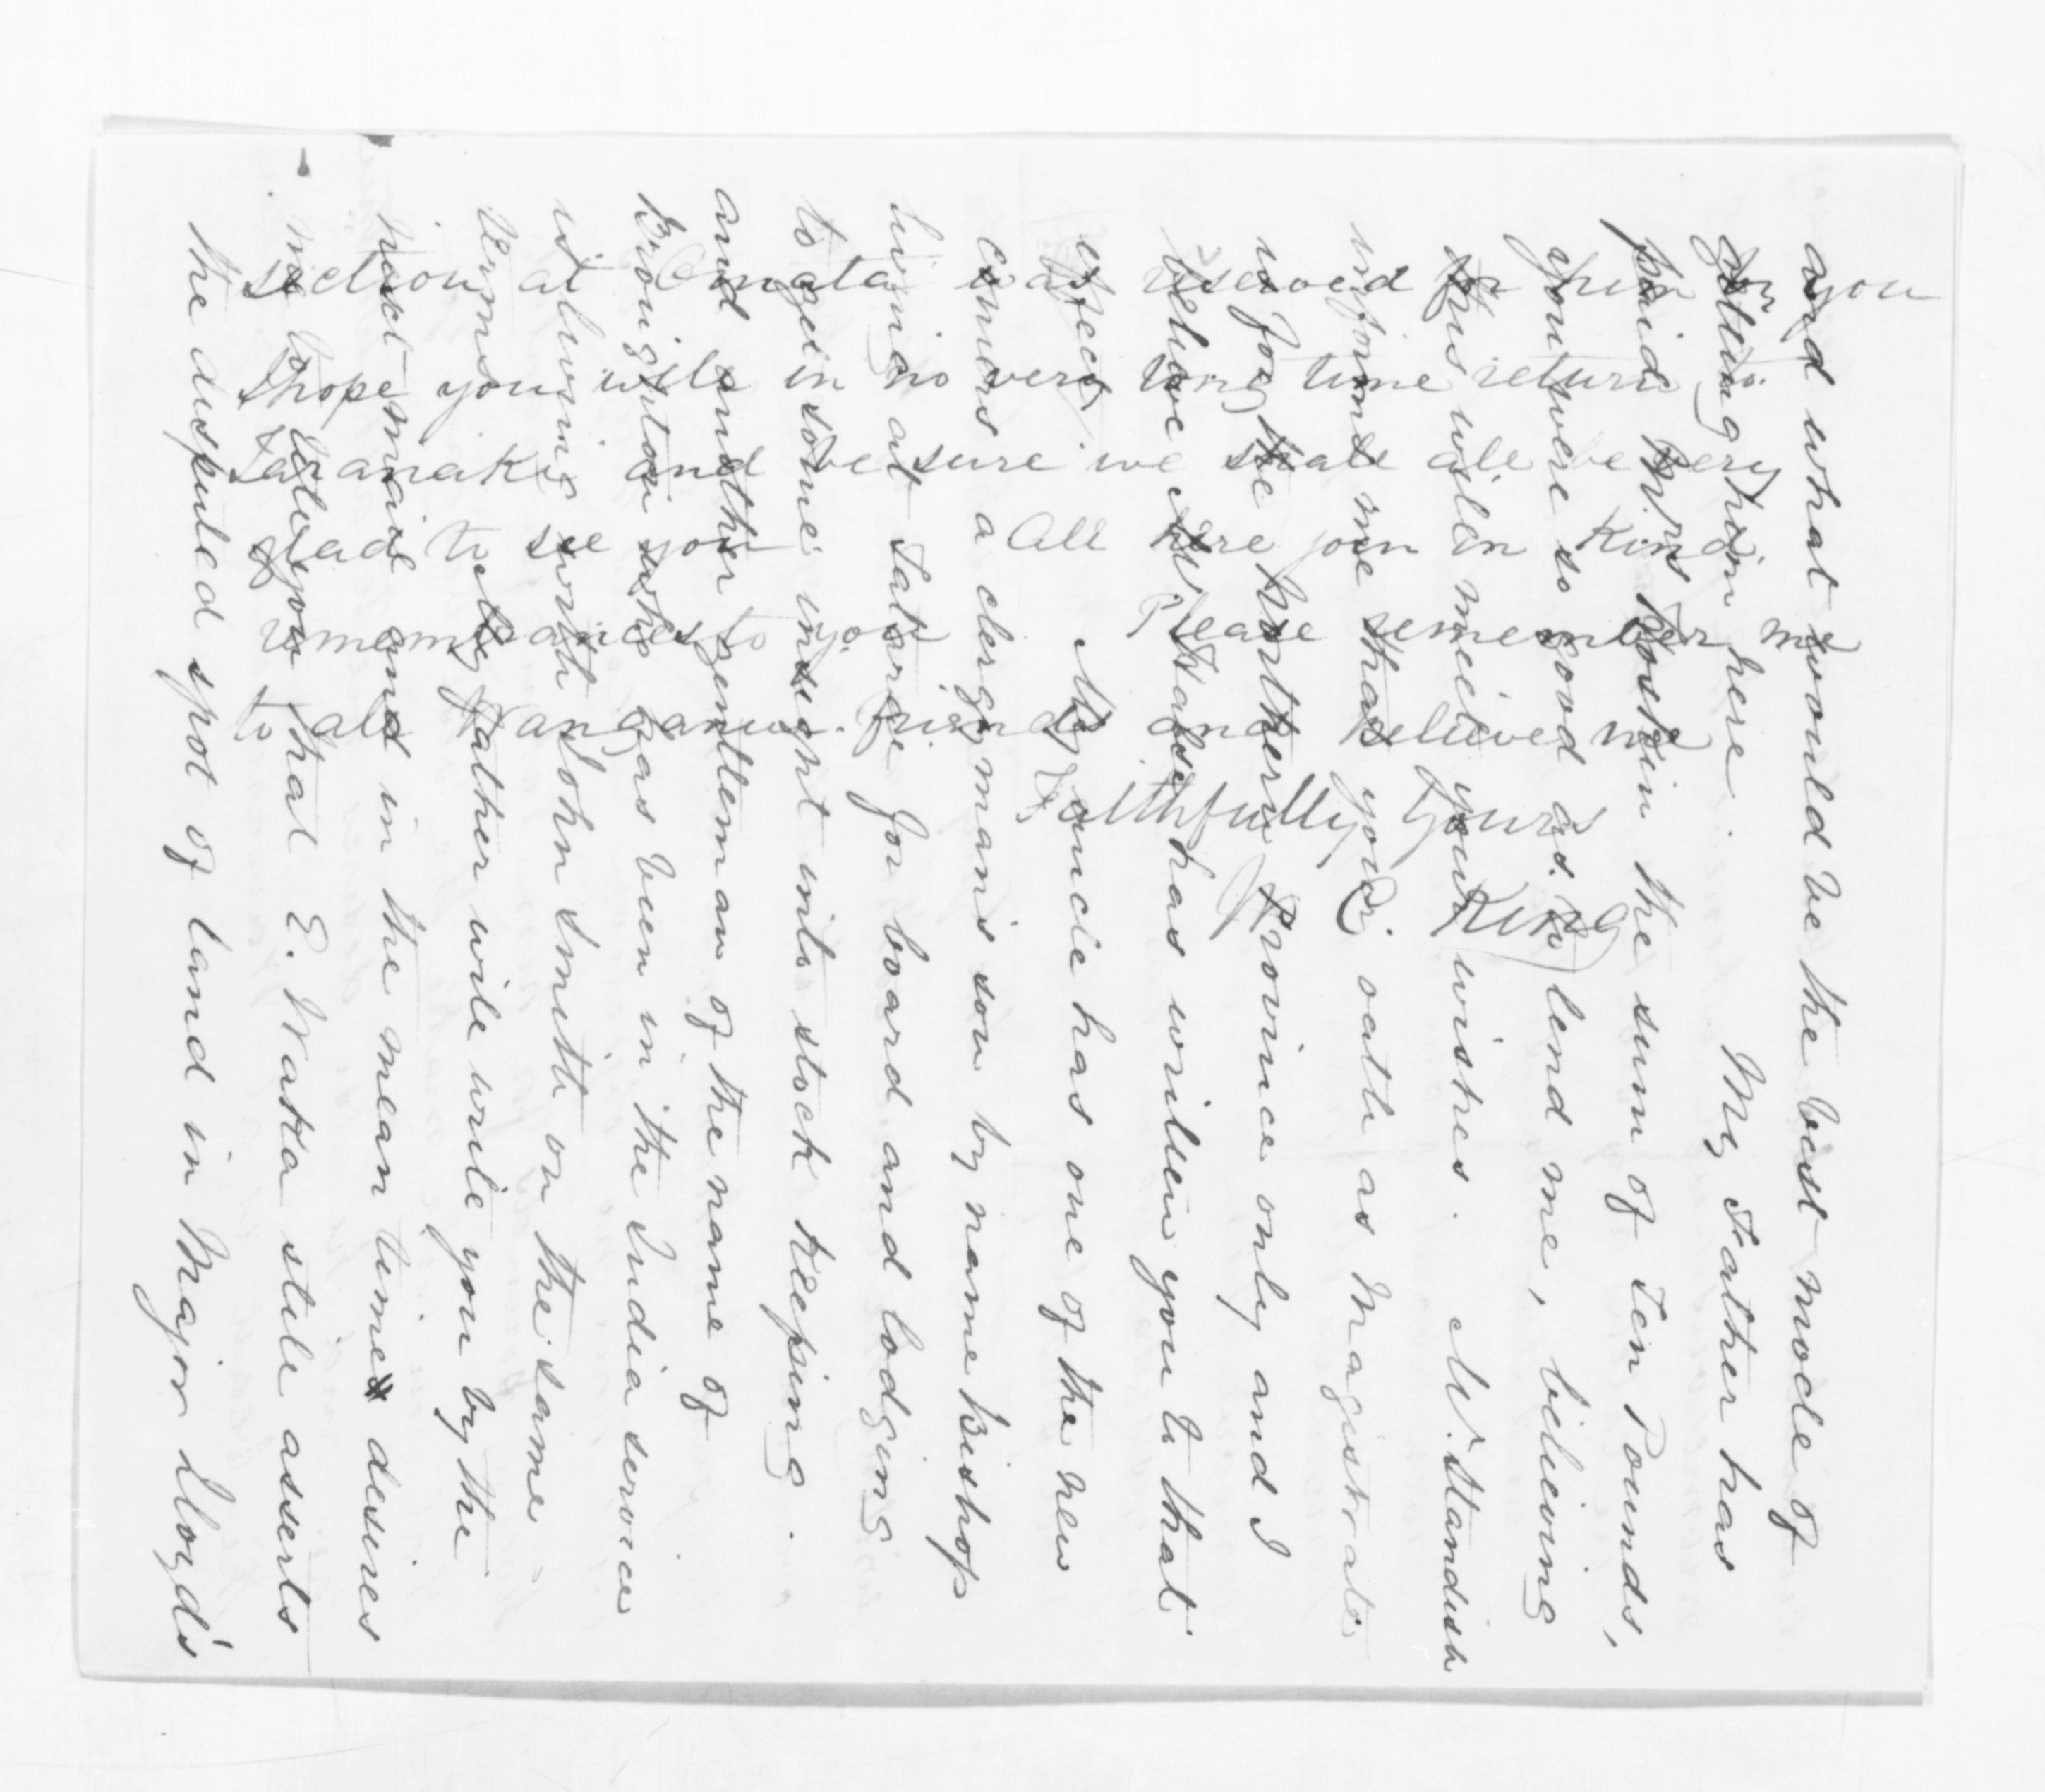 and what would be the best mode of
getting him here. My Father has
paid Mrs Hoskin the sum of Ten Pounds,
you were so good as to lend me, believing
this will meet your wishes. Mr. Standish
informs me that your oath as Magistrate
is for the Northern Province only and I
believe Mr Halse has written you to that
effect. My uncle has one of the new
comers a clergman's son by name Bishop
living at Tataraf for board and lodging
to get some insight into stock keeping.
and another gentleman of the name of
Broughton who has been in the India service
is living with John Smith on the same
terms. My father will write you by the
next mail and in the mean time desires
me to tell you that E. Waka still asserts
the disputed spot of land in Major Lloyd's
section at Omata was reserved for him by you
I hope you will in no very long time return to
Taranaki and be sure we shall all be very
glad to see you All here join in Kind
remembrances to you Please remember me
to all Wanganui friends and believed me
Faithfully Yours
King